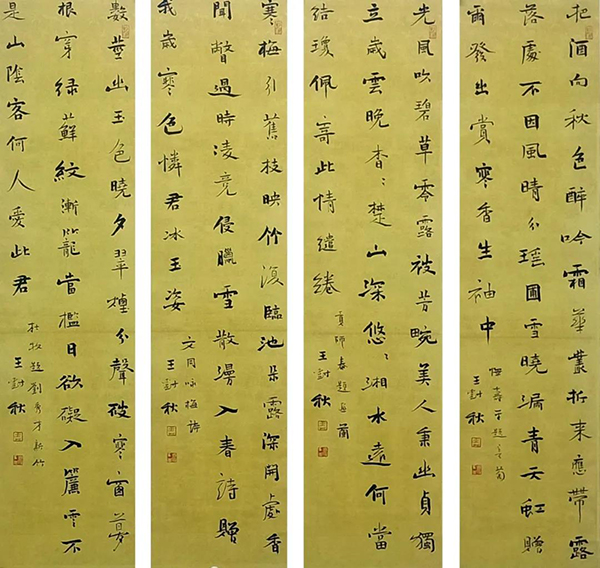 把酒向秋色醉吟霜華叢折来應帶露
落處不因風晴分瑶圃雪曉漏青天虹贈
爾發出賞寒香生袖中
惲壽平題菊
王計秋
光風吹碧草零露被昔畹美人秉幽貞獨
立歲雲晚杳杳楚山深悠悠湘水遠何當
結瓊佩寄此情繾綣
貢師泰題画蘭
王計秋
寒梅引舊枝映竹復臨池朵露深開處香
聞瞥過時凌競侵臘雪散漫入春詩贈
我歲寒色憐君冰玉姿
文同咏梅詩
王計秋
數莖幽玉色曉夕翠煙分聲破寒窗夢
根穿緑蘚紋漸籠當檻日欲礙入簾雲不
是山陰客何人愛此君
杜牧題劉秀才新竹
王計秋